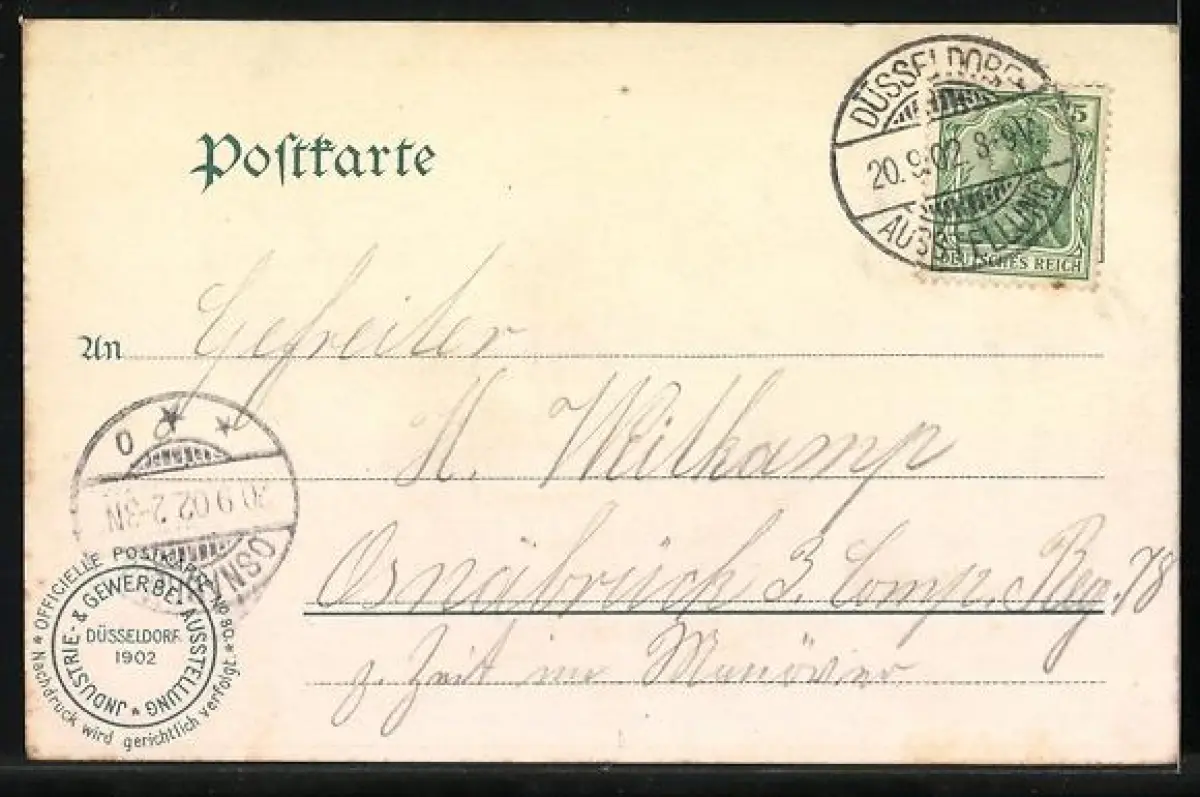 DÜSSELDORF
20.9.02. 8-9V.
AUSSTELLUNG
5
DEUTSCHES REICH
Postkarte
An Gefreiter
H. Weitkamp
Osnabrück 3. Comp. Reg. 78
z. Zeit im Manöver
20 9 02 2-3N
OFFICIELLE POSTKARTE No 80.
JNDUSTRIE- & GEWERBE-AUSSTELLUNG
DÜSSELDORF
1902
Nachdruck wird gerichtlich verfolgt.